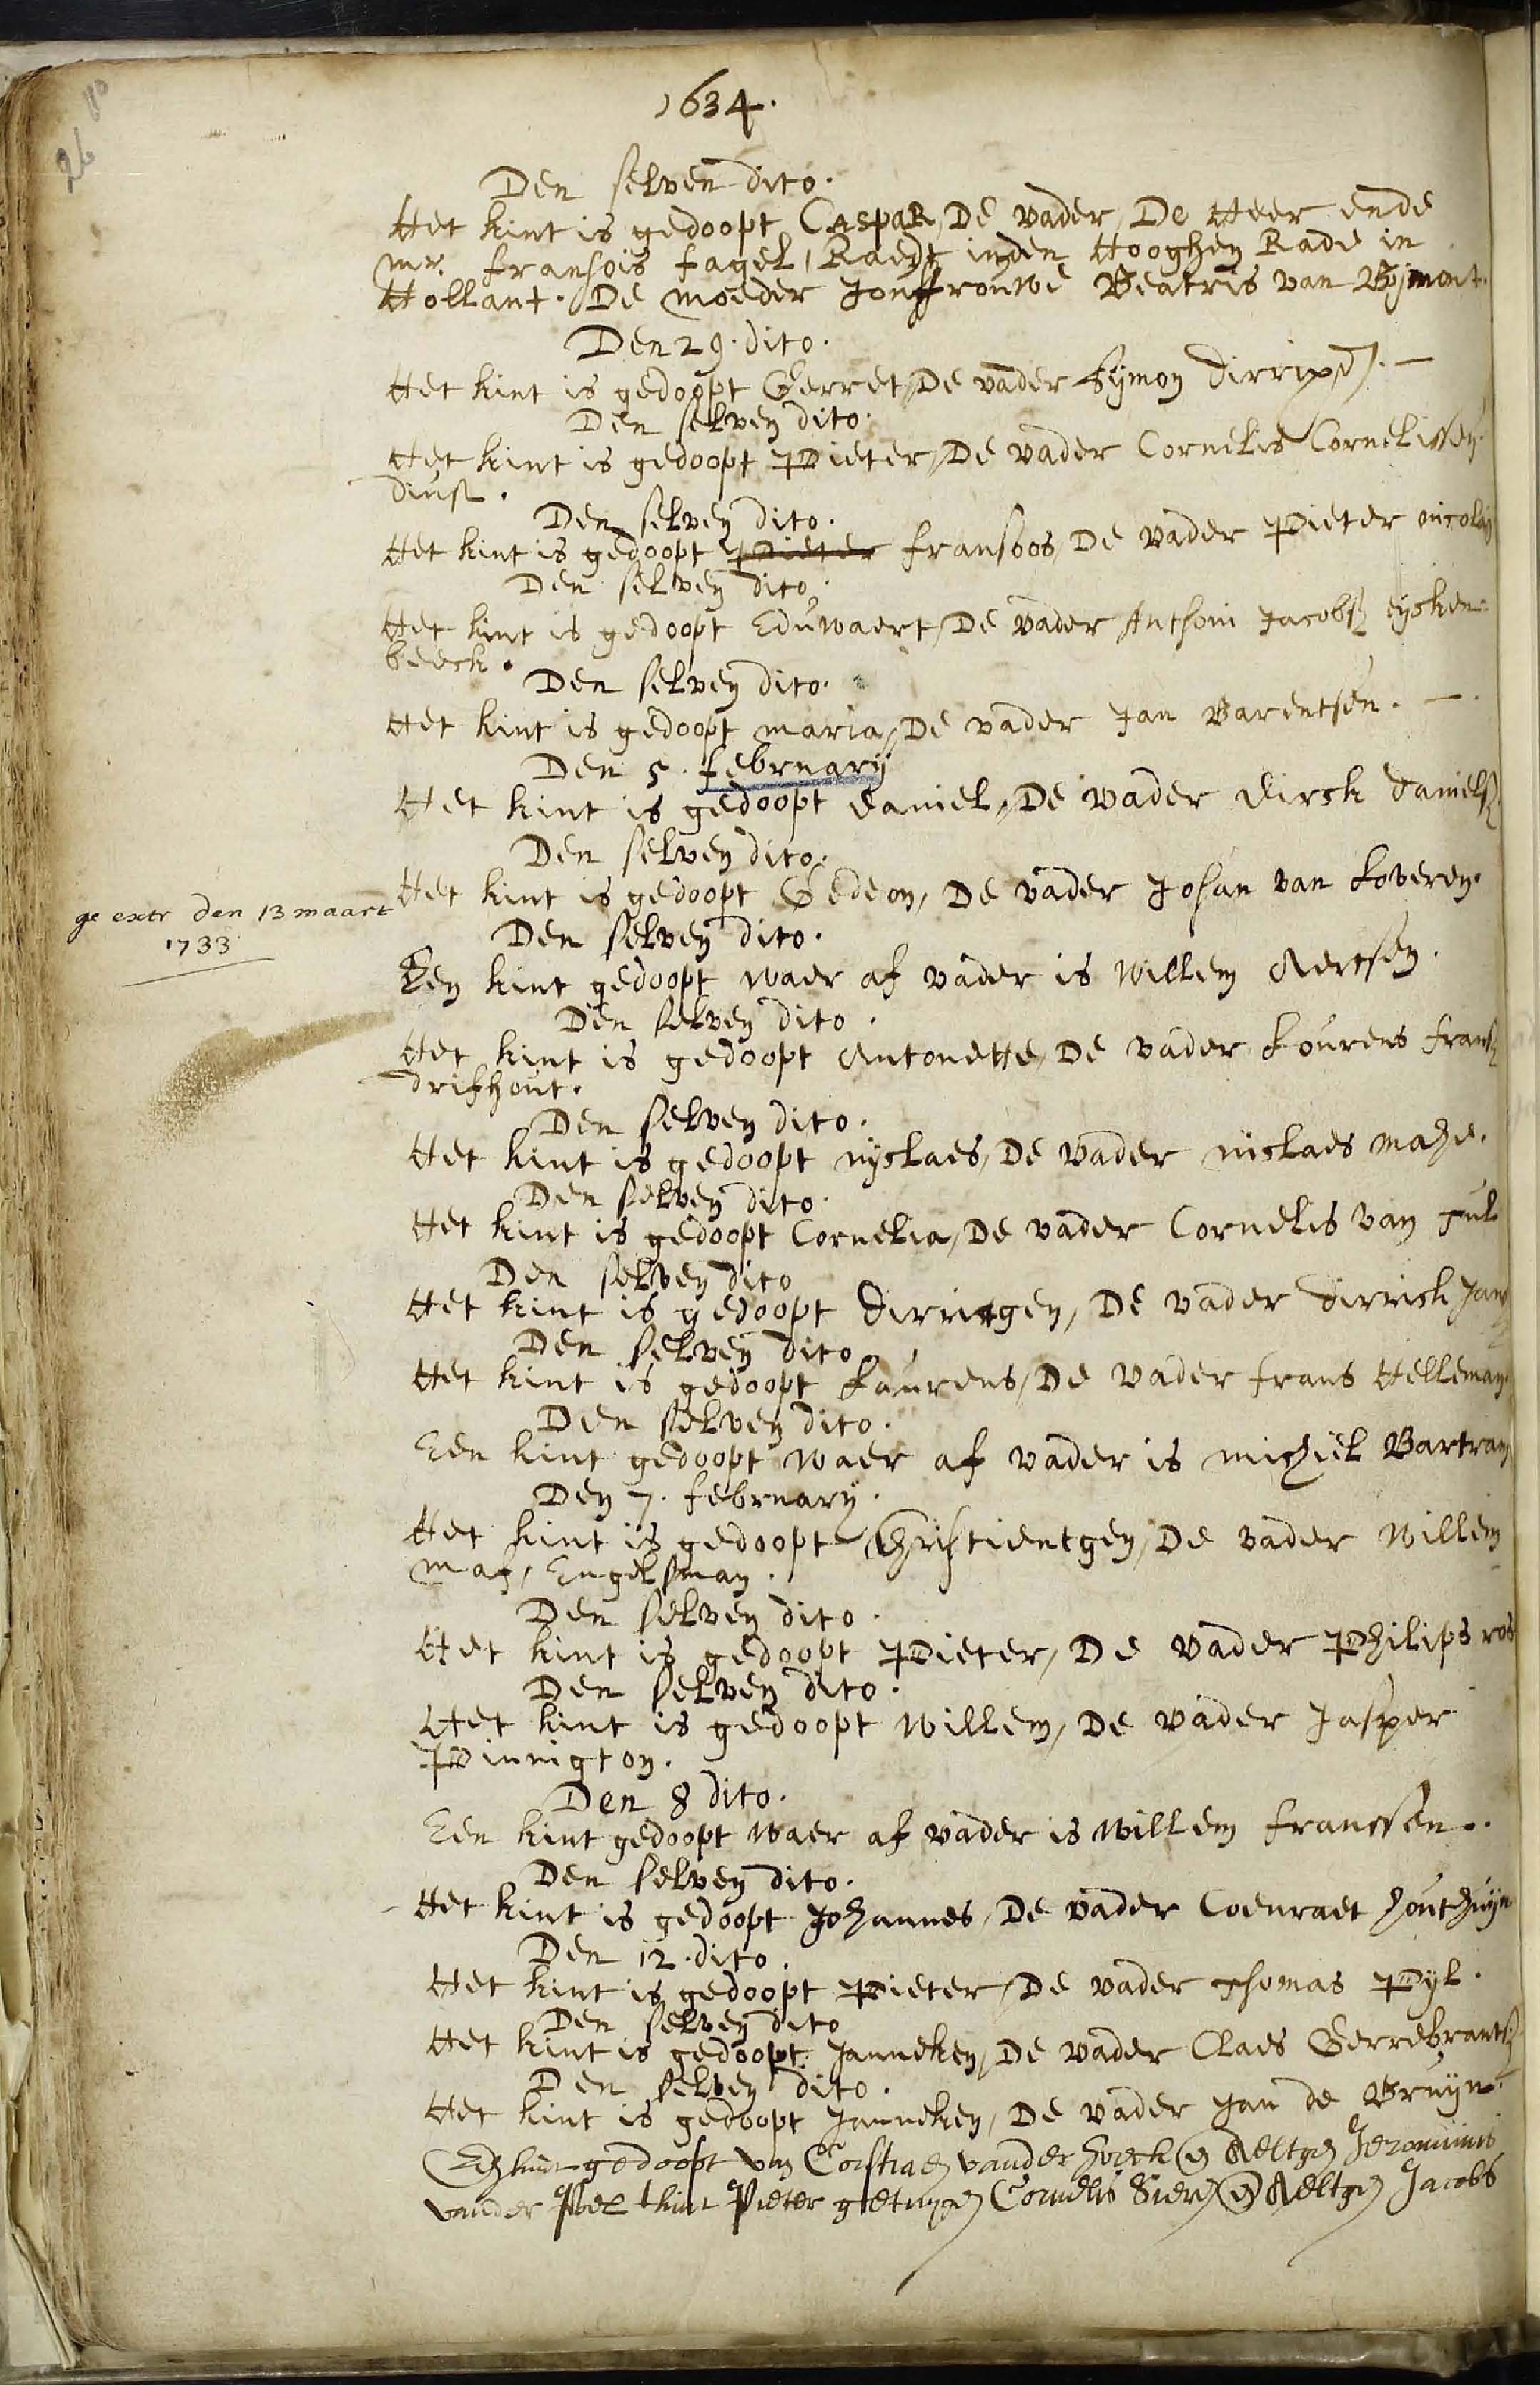 26
1634.
Den selven dito.
Het kint is gedoopt Caspar, De vader, De Heer ende
mr. fransois fagel, Raedt inden Hooghen Rade in
Hollant. De moeder Jonffrouwe Beatris van Bijmont.
Den 29. dito.
Het kint is gedoopt Gerret, De vader Sijmon dirrixsz. —
Den selven dito.
Het kint is gedoopt Pieter, De vader Cornelis Cornelissen
duist.
Den selven dito.
Het kint is gedoopt Pieter fransoos, De vader Pieter nicolaij
Den selven dito.
Het kint is gedoopt Eduwaert, De vader Anthoni Jacobsz eijcken-
beeck.
Den selven dito.
Het kint is gedoopt maria, De vader Jan Barentsen. —
Den 5. february
Het kint is gedoopt daniel, De vader dirck danielsz
Den selven dito.
Het kint is gedoopt Gedeon, De vader Johan van Loveren.
ge extr den 13 maart
1733
Den selven dito.
Een kint gedoopt waer af vader is Willem Aertsen.
Den selven dito.
Het kint is gedoopt Antonette, De vader Lourens fransz
drifhout.
Den selven dito.
Het kint is gedoopt nijclaes, De vader niclaes mahe.
Den selven dito.
Het kint is gedoopt Cornelia, De vader Cornelis van tul
Den selven dito
Het kint is gedoopt dirrictgen, De vader dirrick Jansz
Den selven dito
Het kint is gedoopt Laurens, De vader frans Helleman.
Den selven dito.
Een kint gedoopt waer af vader is michiel Bartram
Den 7. february.
Het kint is gedoopt Christientgen, De vader Willem
maf, Engelsman.
Den selven dito.
Het kint is gedoopt Pieter, De vader Philips ros
Den selven dito.
Het kint is gedoopt Willem, De vader Jasper
Pinnigton.
Den 8 dito.
Een kint gedoopt waer af vader is Willem franssen.
Den selven dito.
Het kint is gedoopt Johannes, De vader Coenraet houthuijn
Den 12. dito.
Het kint is gedoopt Pieter, De vader Thomas Pyl.
Den selven dito
Het kint is gedoopt Janneken, De vader Claes Gerrebrantsz
Den selven dito.
Het kint is gedoopt Janneken, De vader Jan de Bruijn.
Een kint gedoopt van Corstiaen vander hoeck en Aeltgen Jeronimus
vander Poel tkint Pieter getuygen Cornelis Siersz en Aeltgen Jacobs